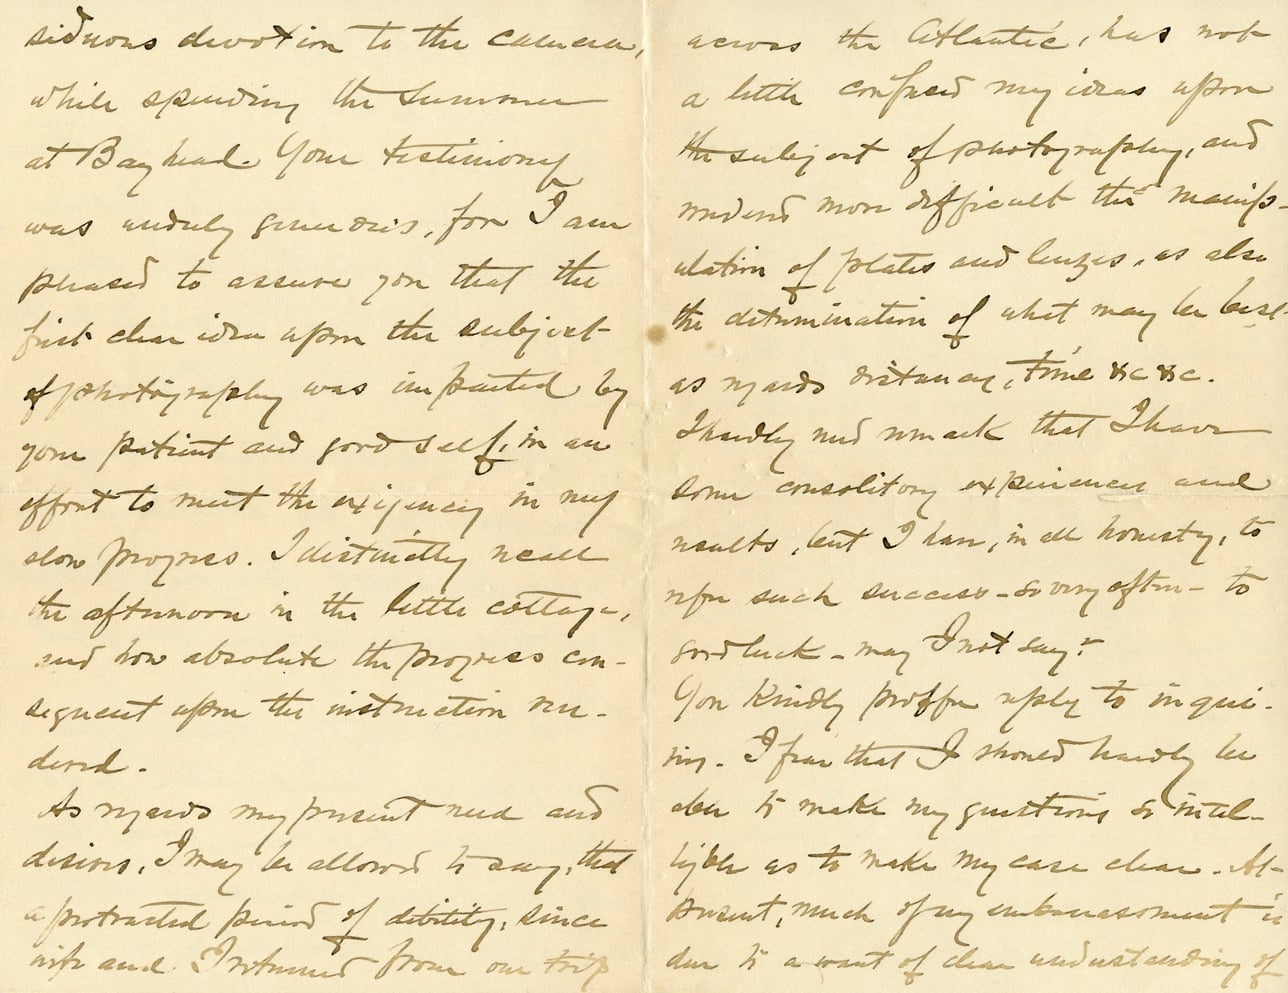 siduous devotion to the camera,
while spending the Summer
at Bayhead. Your testimony
was unduly generous, for I am
pleased to assure you that the
first clear idea upon the subject
of photography was imparted by
your patient and good self, in an
effort to meet the exigency in my
slow progress. I distinctly recall
the afternoon in the little cottage,
and how absolute the progress con-
sequent upon the instruction ren-
dered.
As regards my present need and
desires, I may be allowed to say, that
a protracted period of debility, since
wife and I returned from our trip
across the Atlantic, has not
a little confused my ideas upon
the subject of photography, and
renders more difficult the manip-
ulation of plates and lenzes, as also
the determination of what may be best
as regards distance, time &c &c.
I hardly need remark that I have
some consolitory experiences and
results, but I have, in all honesty, to
refer such success - so very often - to
good luck - may I not say?
You kindly proffer reply to inqui-
ries. I fear that I should hardly be
able to make my questions so intel-
ligible as to make my case clear. At
present, much of my embarrassment is
due to a want of clear understanding of